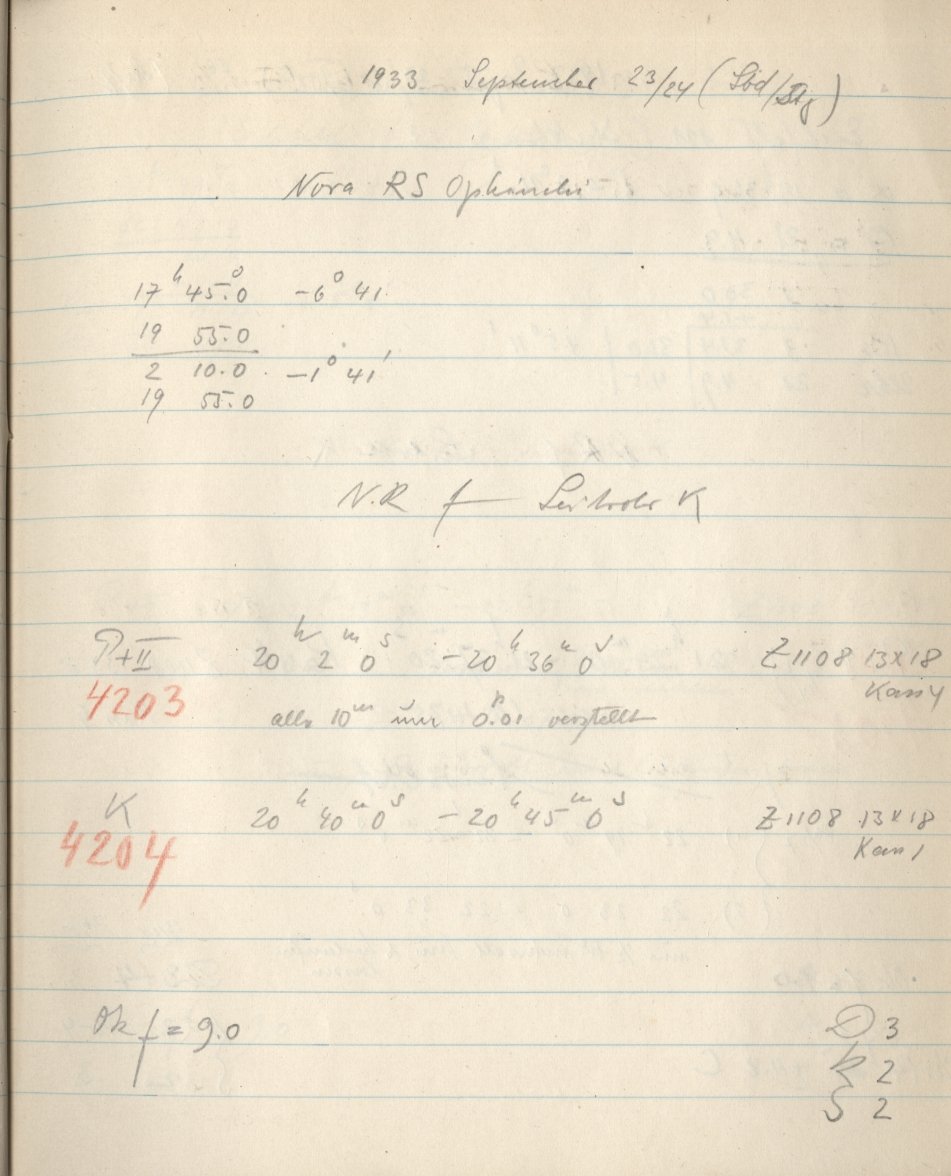 1933 September 23/24 (
Nova RS Ophiuchi
17ʰ 45.0 -6° 41
19 55.0
2 10.0 -1° 41'
19 55.0
N.R f — Leitrohr K
P+II 20ʰ 2ᵐ 0ˢ -20ʰ 36ᵐ 0ˢ Z 1108 13x18
4203 Kass 4
alle 10ᵐ um 0.01 verstellt
K 20ʰ 40ᵐ 0ˢ -20ʰ 45ᵐ 0ˢ Z 1108 13x18
4204 Kass 1
Ok f = 9.0 D 3
R 2
S 2